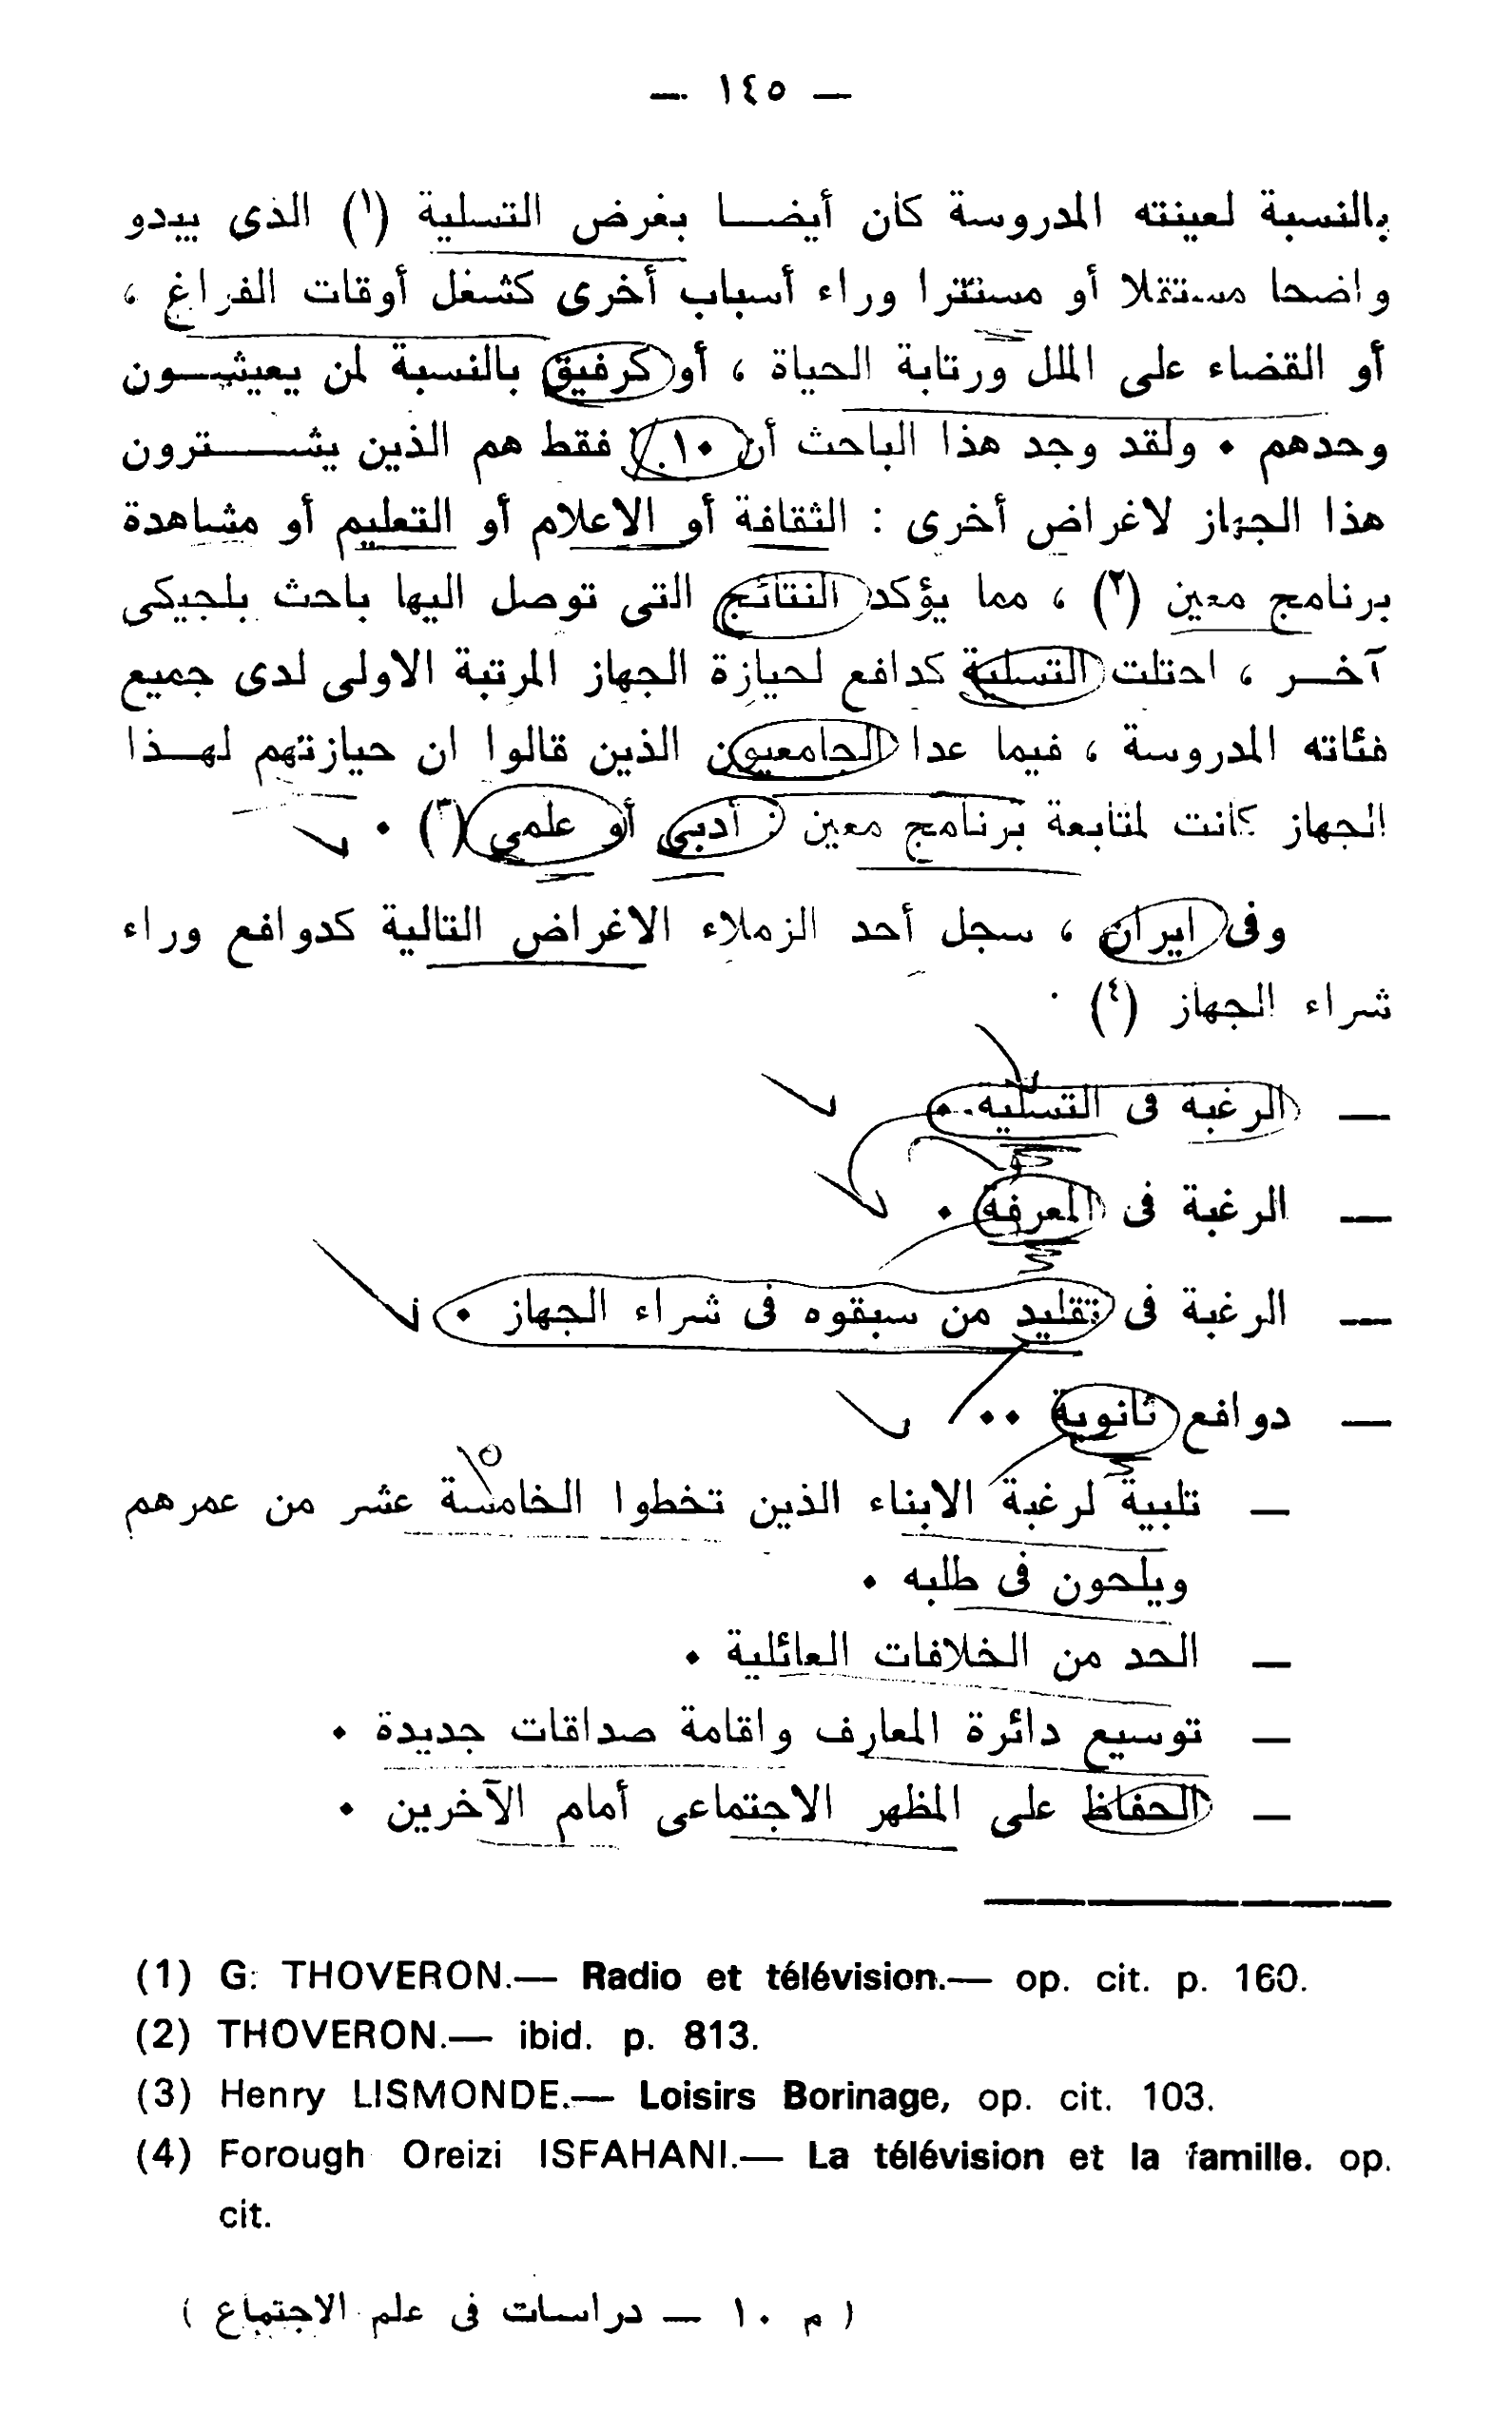 — ١٤٥ —
بالنسبة لعينته المدروسة كان أيضا بغرض التسلية (١) الذى يبدو
واضحا مستقلا أو مستترا وراء أسباب أخرى كشغل أوقات الفراغ ،
أو القضاء على الملل ورتابة الحياة ، أو كرفيق بالنسبة لمن يعيشون
وحدهم ٠ ولقد وجد هذا الباحث أن ١٠٪ فقط هم الذين يشترون
هذا الجهاز لاغراض أخرى : الثقافة أو الاعلام أو التعليم أو مشاهدة
برنامج معين (٢) ، مما يؤكد النتائج التى توصل اليها باحث بلجيكى
آخر ، احتلت التسلية كدافع لحيازة الجهاز المرتبة الاولى لدى جميع
فئاته المدروسة ، فيما عدا الجامعيون الذين قالوا ان حيازتهم لهذا
الجهاز كانت لمتابعة برنامج معين : أدبى أو علمى (٣) ٠
وفى ايران ، سجل أحد الزملاء الاغراض التالية كدوافع وراء
شراء الجهاز (٤) ٠
— الرغبه فى التسليه ٠
— الرغبة فى المعرفة ٠
— الرغبة فى تقليد من سبقوه فى شراء الجهاز ٠
— دوافع ثانوية ٠٠
١٥
— تلبية لرغبة الابناء الذين تخطوا الخامسة عشر من عمرهم
ويلحون فى طلبه ٠
— الحد من الخلافات العائلية ٠
— توسيع دائرة المعارف واقامة صداقات جديدة ٠
— الحفاظ على المظهر الاجتماعى أمام الآخرين ٠
(1) G. THOVERON.— Radio et télévision.— op. cit. p. 160.
(2) THOVERON.— ibid. p. 813.
(3) Henry LISMONDE.— Loisirs Borinage, op. cit. 103.
(4) Forough Oreizi ISFAHANI.— La télévision et la famille. op.
cit.
( م ١٠ — دراسات فى علم الاجتماع )